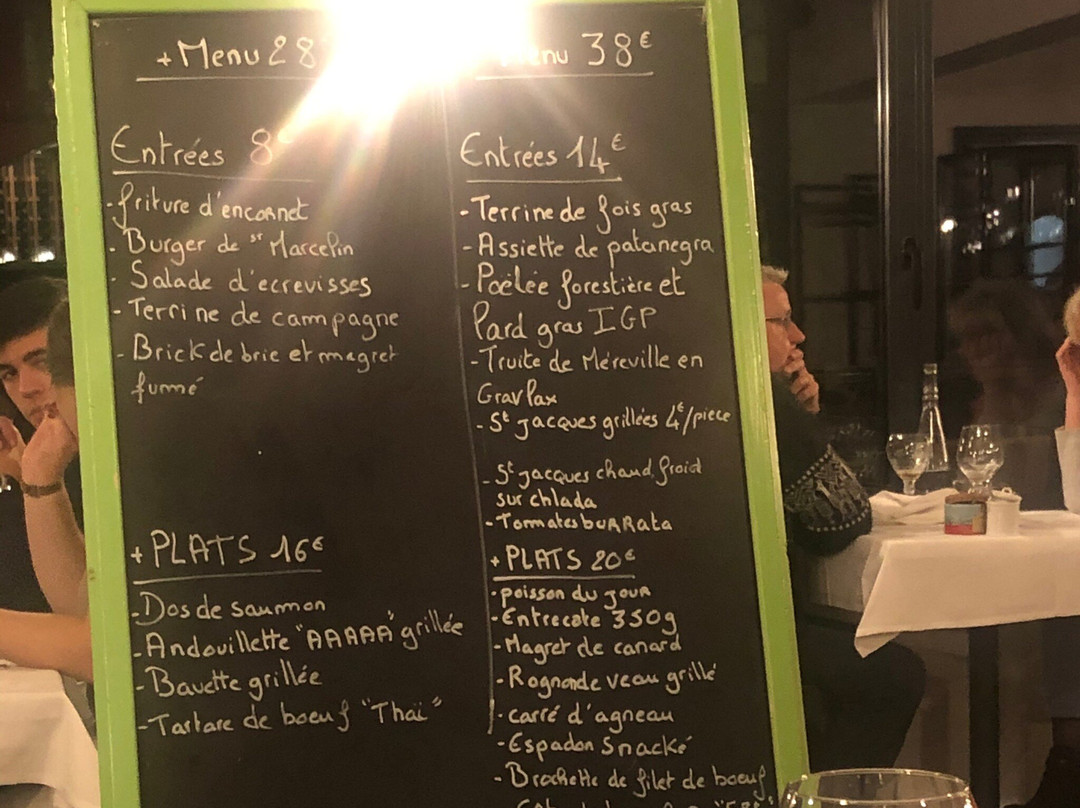 + Menu 28
Entrées 8€
- friture d'encornet
- Burger de St Marcelin
- Salade d'ecrevisses
- Terrine de campagne
- Brick de brie et magret
fumé
+ PLATS 16€
- Dos de saumon
- Andouillette "AAAAA" grillée
- Bavette grillée
- Tartare de boeuf "Thaï"
enu 38€
Entrées 14€
- Terrine de fois gras
- Assiette de patanegra
- Poêlée forestière et
Lard gras IGP
- Truite de Méréville en
Gravlax
- St jacques grillées 4€/piece
- St jacques chaud, froid
sur chlada
- Tomates buRRata
+ PLATS 20€
- poisson du jour
- Entrecote 350g
- Magret de canard
- Rognon de veau grillé
- carré d'agneau
- Espadon Snacké
- Brochette de filet de boeuf